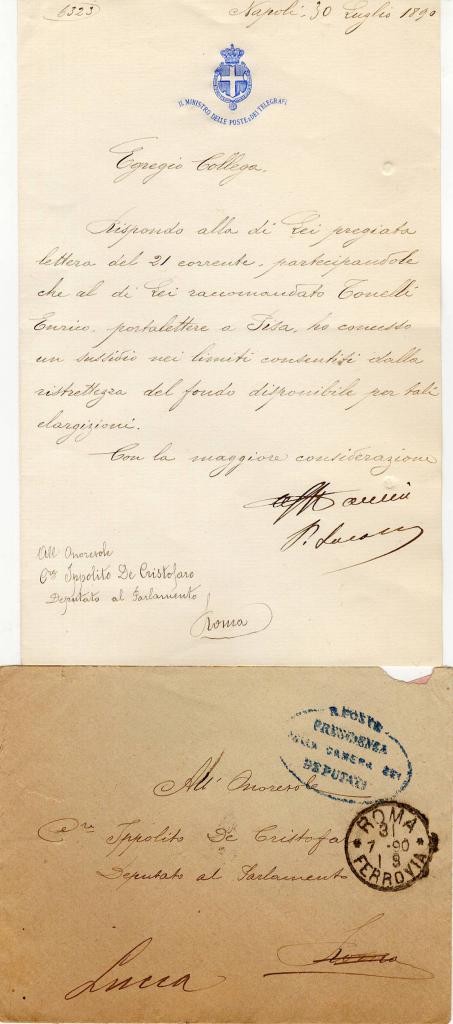 6323
Napoli, 30 Luglio 1890
IL MINISTRO DELLE POSTE E DEI TELEGRAFI
Egregio Collega.
Rispondo alla di Lei pregiata
lettera del 21 corrente, partecipandole
che al di Lei raccomandato Tonelli
Enrico, portalettere a Pisa, ho concesso
un sussidio nei limiti consentiti dalla
ristrettezza del fondo disponibile per tali
elargizioni.
Con la maggiore considerazione
P. Lacava
All' Onorevole
Cre Ippolito De Cristofaro
Deputato al Parlamento
Roma
R. POSTE
PRESIDENZA
DELLA CAMERA DEI
DEPUTATI
All' Onorevole
Cre Ippolito De Cristofa
Deputato al Parlamento
ROMA
31
7 -90
1 S
FERROVIA
Roma
Lucca